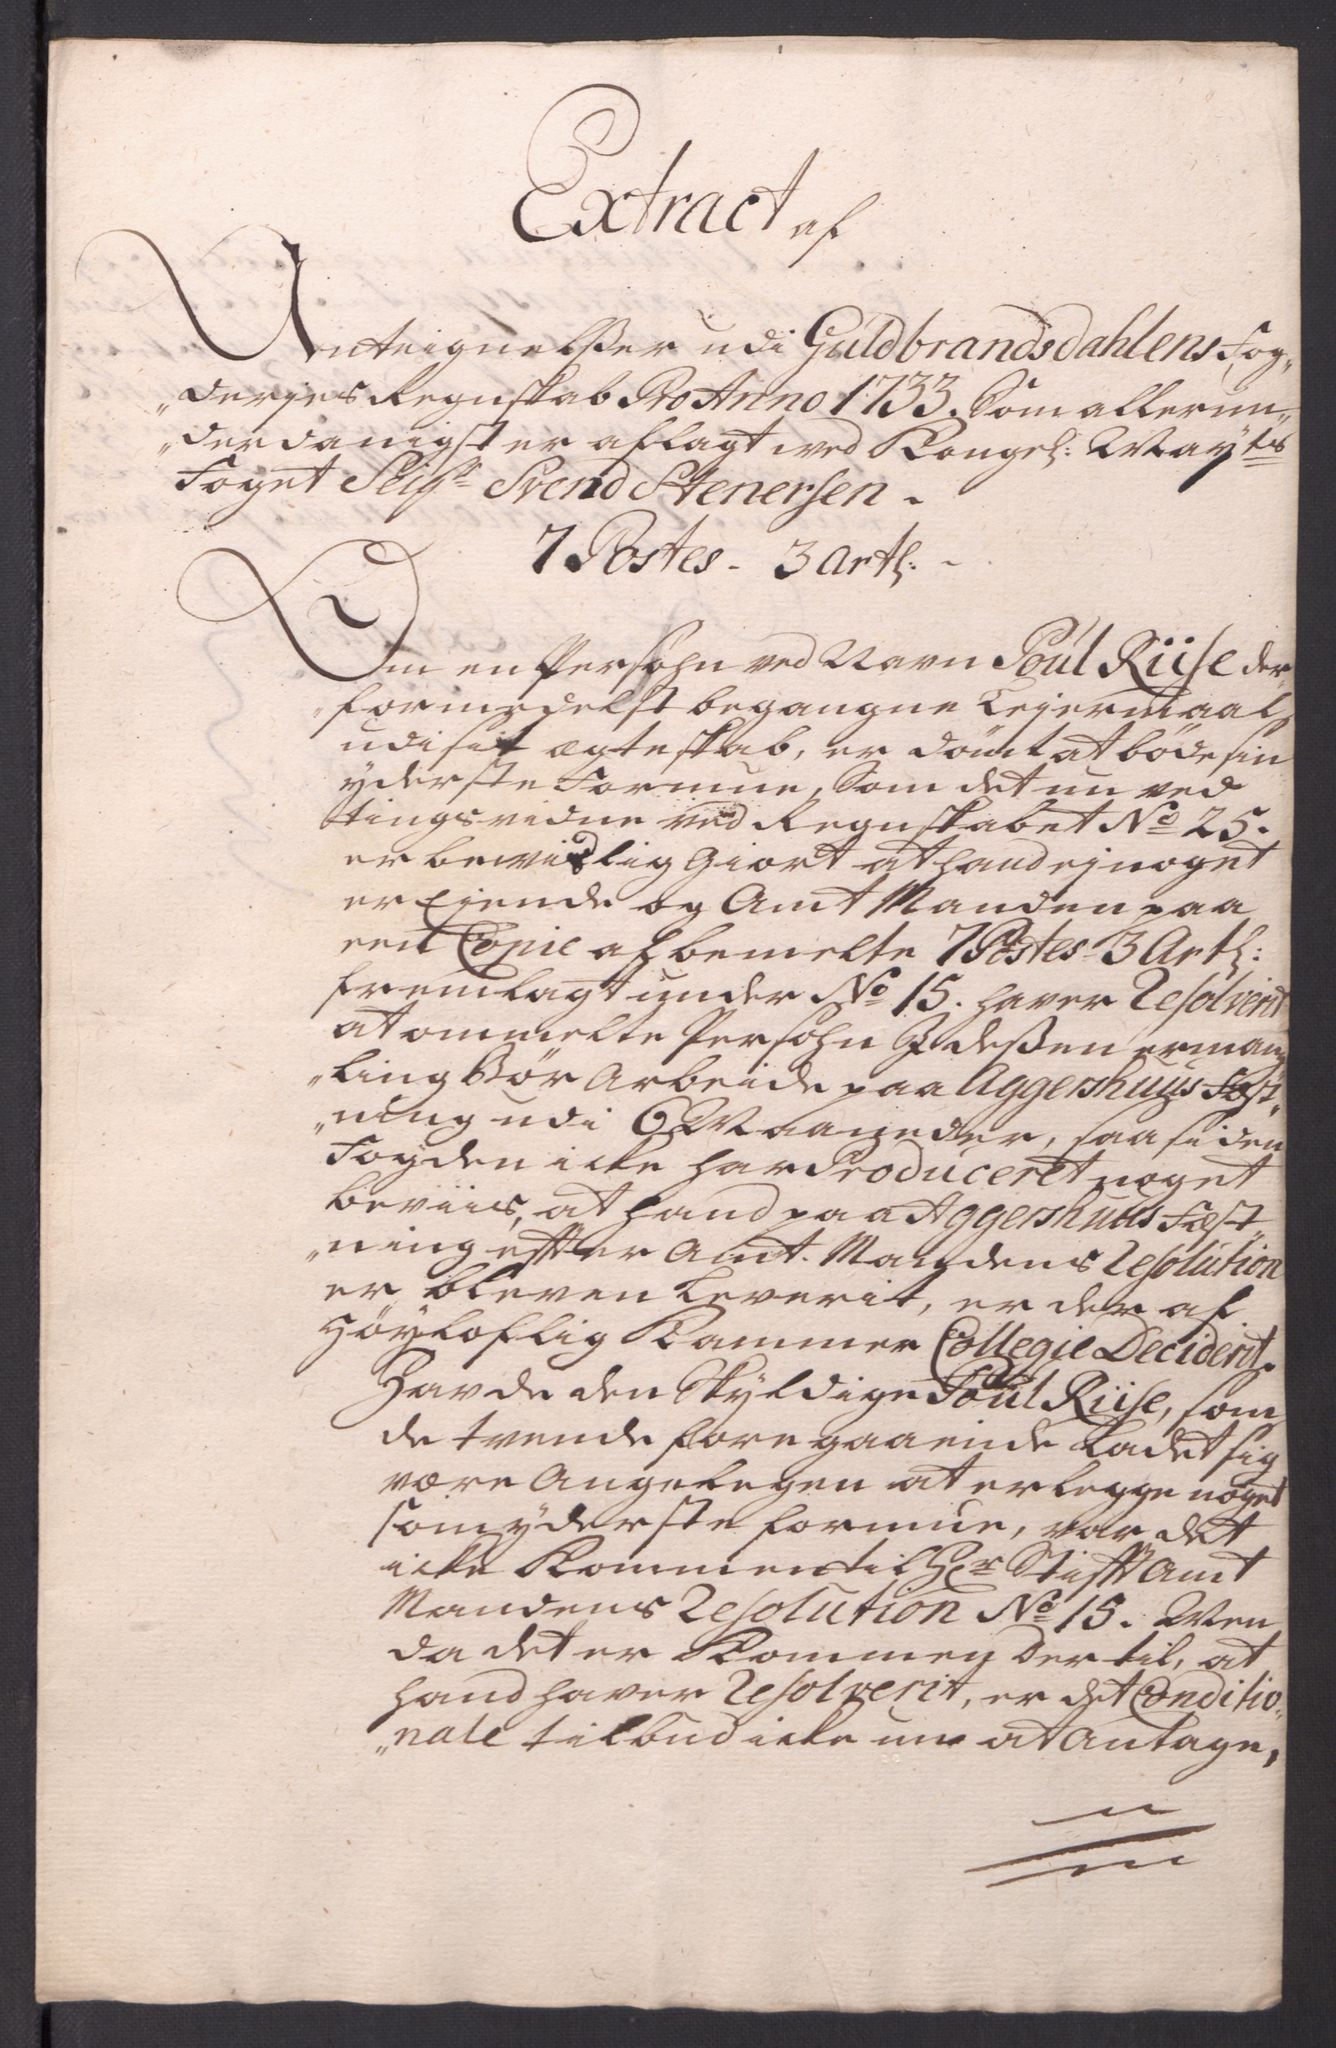 Extract af
Anteignelsser udi Guldbrandsdahlens Fog„
„deries Regnskab Pro Anno 1733. Som allerun„
„derdanigst er aflagt ved Kongel: Mayts
Foget Seigr Svend Stenersen.
7 Postes - 3 Artl: -
Om en Persohn ved Navn Poul Riise der„
„formedelst begangne Leiermaal
udi sit ægteskab, er dömt at böde sin
yderste Formue, Som det nu ved
tingsvidne ved Regnskabet No 25.
er bevislig Giort at hand ej noget
er Ejende og Amt Manden paa
een Copie af bemelte 7 Postes 3 Artl:
fremlagt under No 15. haver Resolverit
at ommelte Persohn I dessen ermang
„ling bör Arbeide paa Aggershuus Fæst„
„ning udi 6 Maaneder, saa siden
Fogden icke har Produceret noget
beviis, at hand paa Aggershuus Fæst„
„ning efter Amt-Mandens Resolution
er bleven Leverit, er der af
Höyloflig Kammer Collegie Deciderit.
Havde den Skyldige Poul Riise, som
de tvende foregaaende Ladet sig
være Angelegen at erlegge noget
som yderste formue, var det
icke Kommen til Hr Stifft Amt
Mandens Resolution No 15. Men
da det er Kommen der til, at
hand haver Resolverit, er det Conditio„
„nale tilbud icke nu at Antage,